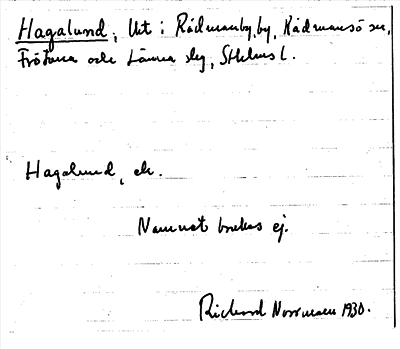 Hagalund, Ut i Rådmanby, by, Rådmansö sn,
Frötuna och Länna slg, Sthlms l.
Hagalund, ch.
Namnet brukas ej.
Richard Norrman 1930.